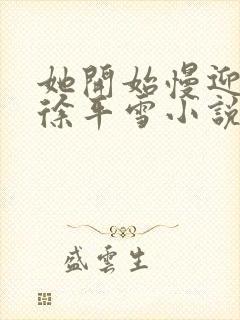 她開始慢迎
徐年雪小說
盛雲生